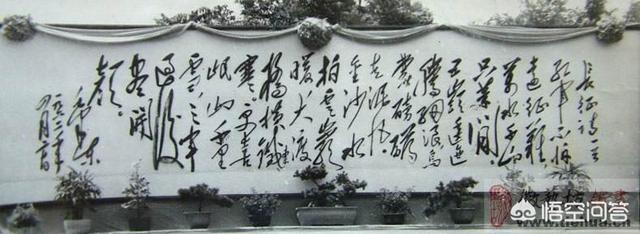 长征诗一首
红军不怕
远征难
万水千山
只等闲
五岭逶迤
腾细浪乌
蒙磅礴
走泥丸
金沙水
拍云崖
暖大渡
桥横铁索
寒。更喜
岷山千里
雪。三军
过后
尽开
颜。
毛泽东
一九六二年
四月二十日
悟空问答